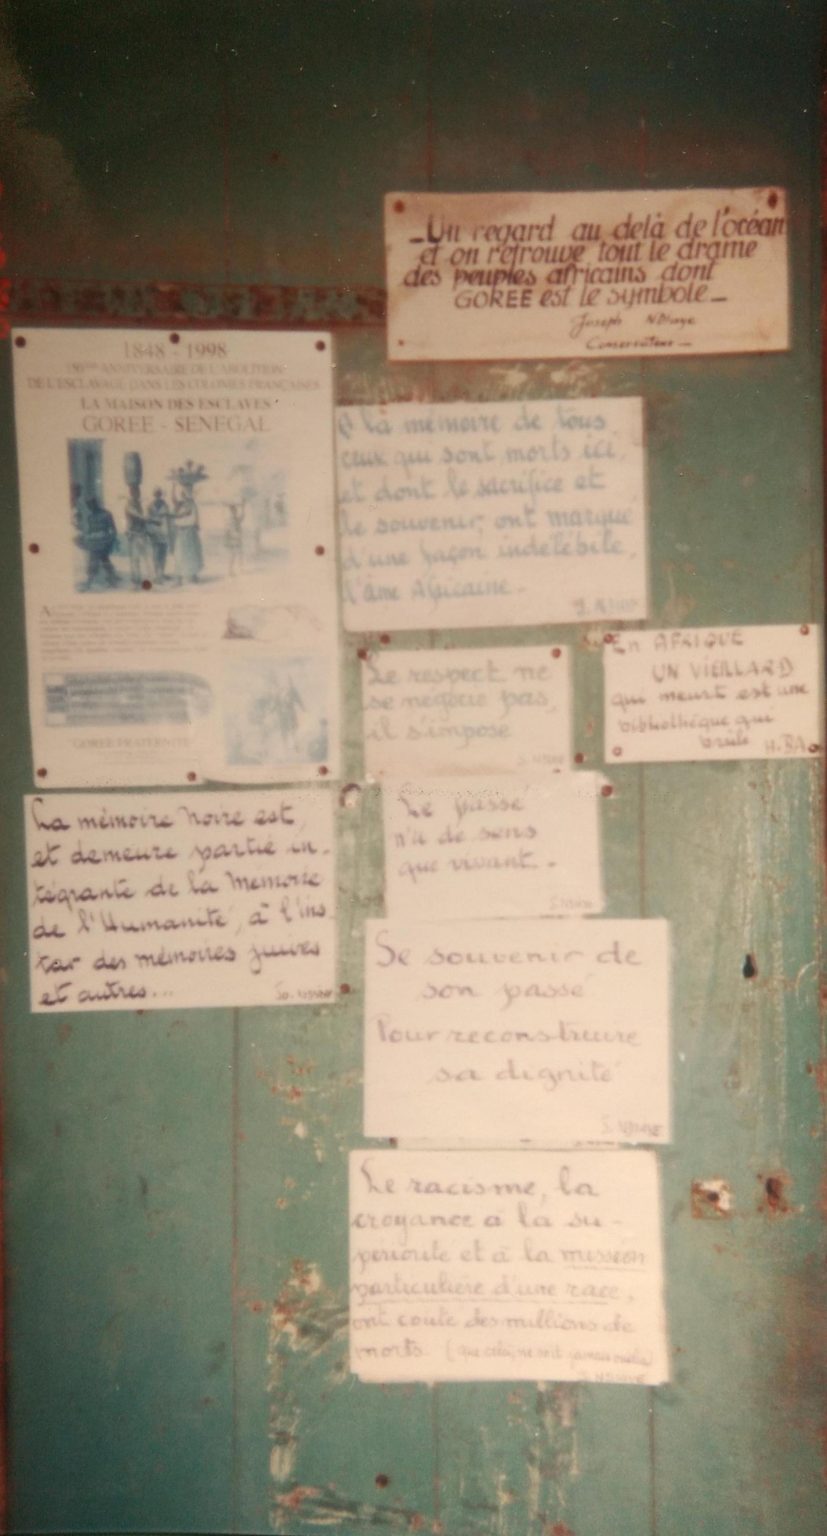 _Un regard au delà de l'océan
et on retrouve tout le drame
des peuples africains dont
GOREE est le symbole_
Joseph NDiaye
Conservateur_
1848 - 1998
150ème ANNIVERSAIRE DE L'ABOLITION
DE L'ESCLAVAGE DANS LES COLONIES FRANÇAISES
LA MAISON DES ESCLAVES
GOREE - SENEGAL
GOREE FRATERNITE
A la mémoire de tous
ceux qui sont morts ici,
et dont le sacrifice et
le souvenir, ont marqué
d'une façon indélébile,
l'âme Africaine.
J. NDIAYE
Le respect ne
se négocie pas,
il s'impose
J. NDIAYE
En AFRIQUE
UN VIEILLARD
qui meurt est une
bibliothèque qui
brûle
H. BA
La mémoire Noire est,
et demeure partie in-
tégrante de la Memoire
de l'Humanité, à l'ins
tar des mémoires juives
et autres...
Jo. NDIAYE
Le passé
n'a de sens
que vivant.-
J. NDIAYE
Se souvenir de
son passé
Pour reconstruire
sa dignité
J. NDIAYE
Le racisme, la
croyance à la su-
périorité et à la mission
particulière d'une race,
ont coûté des millions de
morts. (que cela, ne soit jamais oublié)
J. NDIAYE